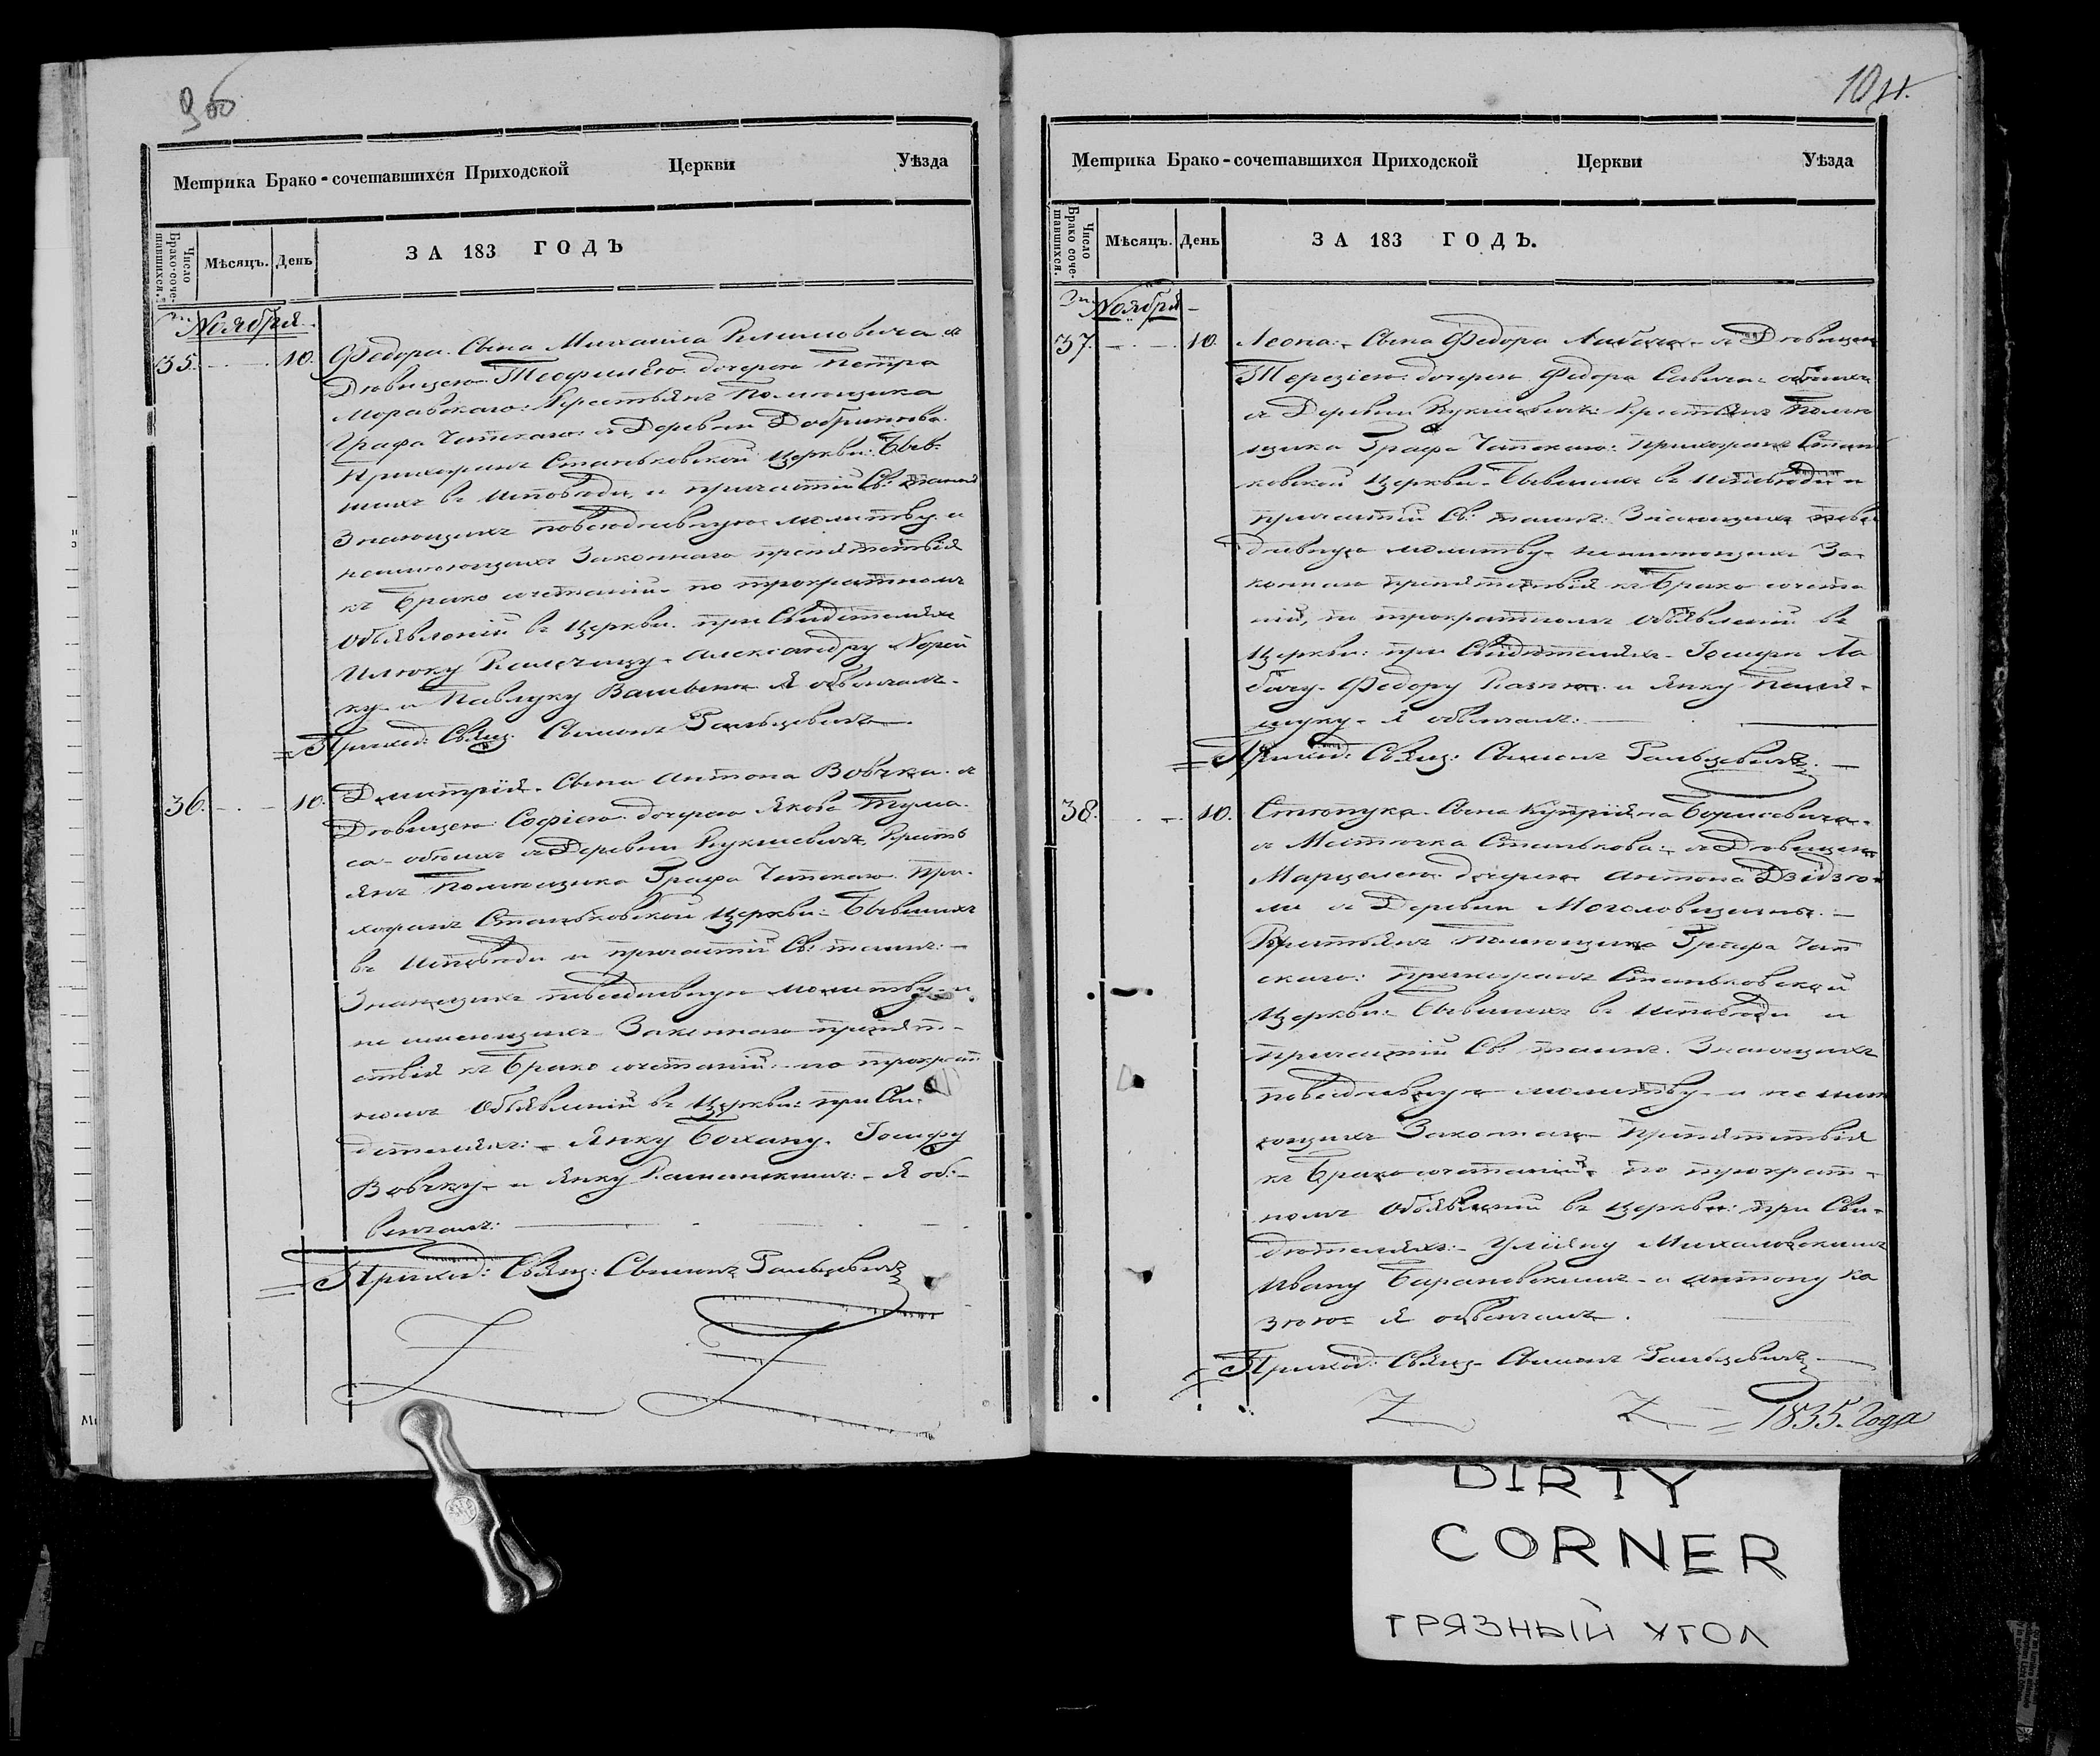 9об
Метрика Брако-сочетавшихся Приходской Церкви Уѣзда
Число Брако-соче-тавшихся.
Мѣсяцъ.
День
ЗА 183 ГОДЪ
Ноября
35. 10. Федора. Сына Михаила Климовича съ
Дѣвицею Теофилѣю дочерью Петра
Моравскаго: Крестьянъ Помѣщика
Графа Чапскаго: съ Деревни Добринева.
Прихожанъ Станьковской Церкви: Быв-
шихъ въ исповѣди, и причастіи Св:
Знающихъ повседневную молитву и
неимеющихъ Законнаго препятствія
къ Брако сочетаній по трократномъ
Объявленіи въ Церкви. при Свидѣтеляхъ
Александру
ку и Павлуку я обвенчалъ.
Приход: Свящ: Сымонъ Гальцевичъ
36. 10. Дмитрія. Сына Антона Вовчка. съ
Дѣвицею Софіею дочерью Якова Тума-
са обоихъ съ Деревни Кукшевичъ Кресть
янъ Помѣщика Графа Чапскаго При-
хожанъ Станьковской Церкви: Бывшихъ
въ исповѣди и причастіи Св: таинъ:
Знающихъ повседневную молитву и
не имеющихъ Законнаго препят-
ствія къ Брако сочетаній: по трократ
номъ Объявленій въ Церкви: при Сви-
детеляхъ: Янку Іосифу
Вовчку и Янку Я об-
венчалъ:
Приход: Свящ: Сымонъ Гальцевичъ
10
Метрика Брако-сочетавшихся Приходской Церкви Уѣзда
Число Брако соче-тавшихся.
Мѣсяцъ.
День
ЗА 183 ГОДЪ.
Ноября
37. 10. Леона: Сына Федора съ Дѣвицею
Терезіею: дочерью Федора Савича: обоихъ
съ Деревни Кукшевичъ: Крестьянъ Помѣ
щика Графа Чапскаго: Прихожанъ Стань
ковской Церкви Бывшихъ въ исповѣди и
причастіи Св: таинъ: Знающихъ
дневную молитву неимеющихъ За-
коннаго препятствія къ Брако сочета
ній, по трократномъ Объявленій въ
Церкви: при Свидѣтеляхъ Іосифу Ла
бачу Федору и Янку
щуку я обвенчалъ:
Приход: Свящ: Сымонъ Гальцевичъ
38. 10. Степука. Сына Купріяна Борисевича
съ Местечка Станькова: съ Дѣвицею
Марцелею дочерью Антона Дзідзю-
ли съ Деревни Моголовщины.
Крестьянъ Помѣщика Графа Чап
скаго: Прихожанъ Станьковской
Церкви: Бывшихъ въ исповѣди и
причастіи Св: таинъ. Знающихъ
повседневную молитву и не име
ющихъ Законнаго Препятствія
къ Брако сочетаній. по трократ-
номъ Объявленіи въ Церкви: при Сви-
дѣтеляхъ: Уліяну Михаловскимъ
Ивану Барановскимъ и Антону Ка
зюю я обвенчалъ.
Приход: Свящ Сымонъ Гальцевичъ
1835. Года
DIRTY
CORNER
ГРЯЗНЫЙ УГОЛ